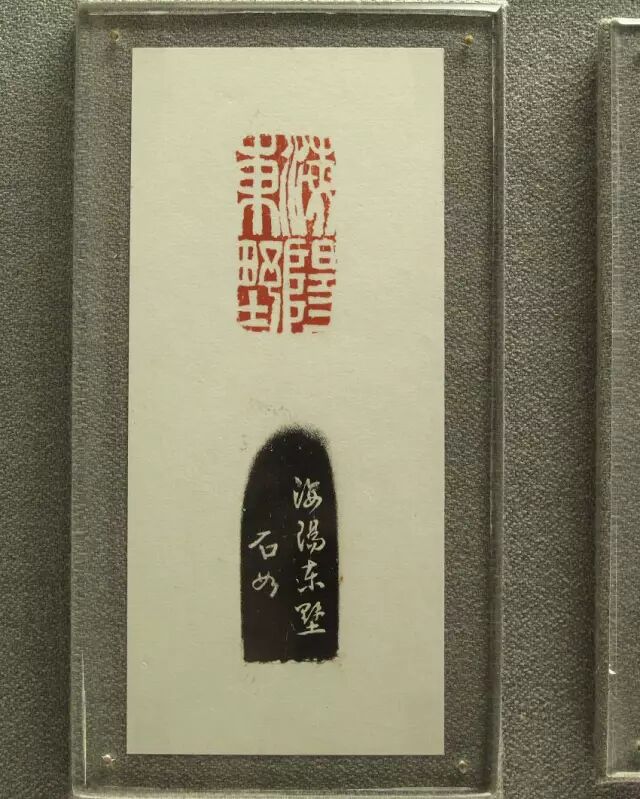 海陽
東墅
海陽東墅
石如